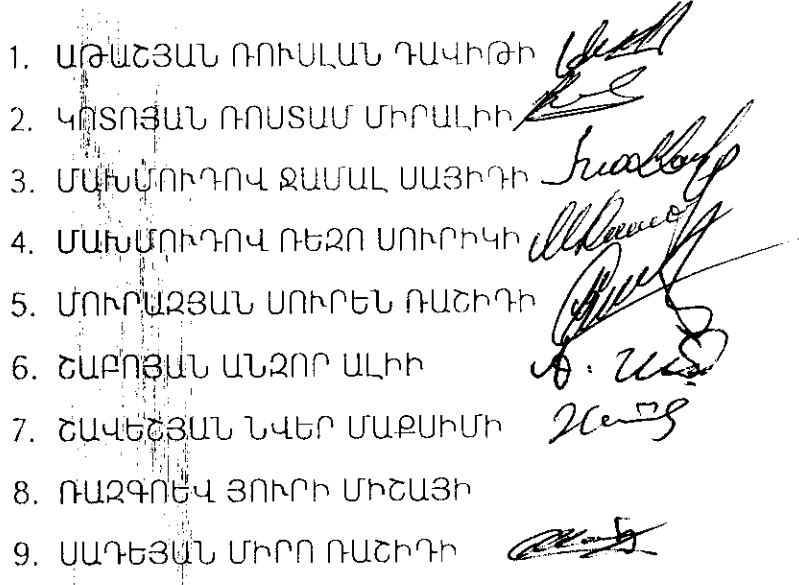 1. ԱԹԱՇՅԱՆ ՌՈՒՍԼԱՆ ԴԱՎԻԹԻ
2. ԿՈՏՈՅԱՆ ՌՈՍՏԱՄ ՄԻՐԱԼԻԻ
3. ՄԱԽՄՈՒԴՈՎ ՋԱՄԱԼ ՍԱՅԻԴԻ
4. ՄԱԽՄՈՒԴՈՎ ՌԵԶՈ ՍՈՒՐԻԿԻ
5. ՄՈՒՐԱԶՅԱՆ ՍՈՒՐԵՆ ՌԱՇԻԴԻ
6. ՇԱԲՈՅԱՆ ԱՆԶՈՐ ԱԼԻԻ
7. ՇԱՎԵՇՅԱՆ ՆՎԵՐ ՄԱՔՍԻՄԻ
8. ՌԱԶԳՈԵՎ ՅՈՒՐԻ ՄԻՇԱՅԻ
9. ՍԱԴԵՅԱՆ ՄԻՐՈ ՌԱՇԻԴԻ